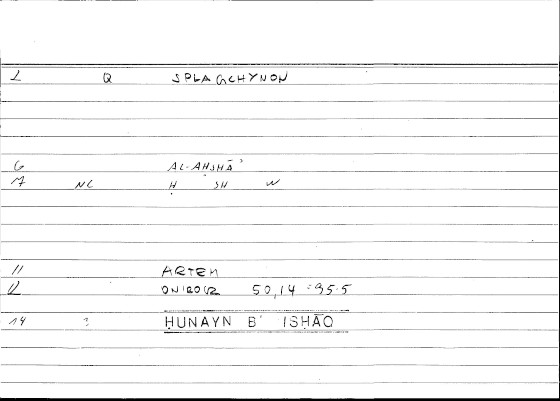 1 Q SPLAGCHYNON
6 AL-AḤSHĀʾ
7 NC Ḥ SH W
11 ARTEM
12 ONIROCR 50,14 = 95.5
14 ? ḤUNAYN B' ISḤĀQ